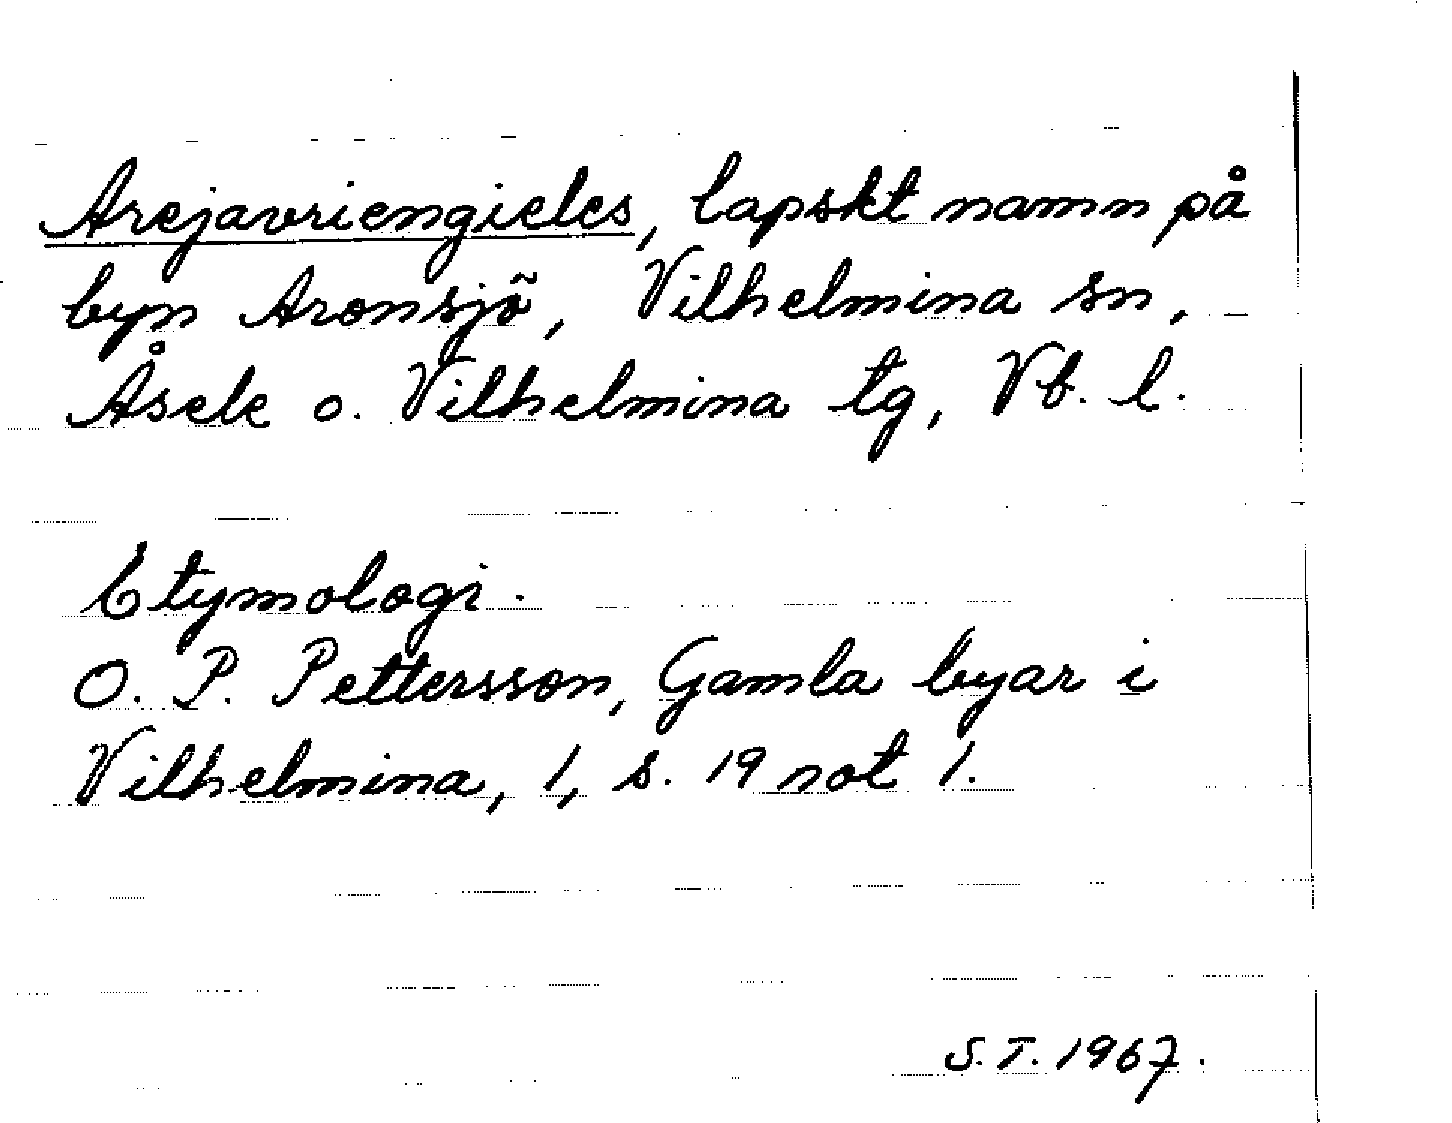 Arejavriengieles, lapskt namn på
byn Aronsjö, Vilhelmina sn,
Åsele o. Vilhelmina tg, Vb. l.
Etymologi.
O. P. Pettersson, Gamla byar i
Vilhelmina, 1, s. 19 not 1.
S.T. 1967.